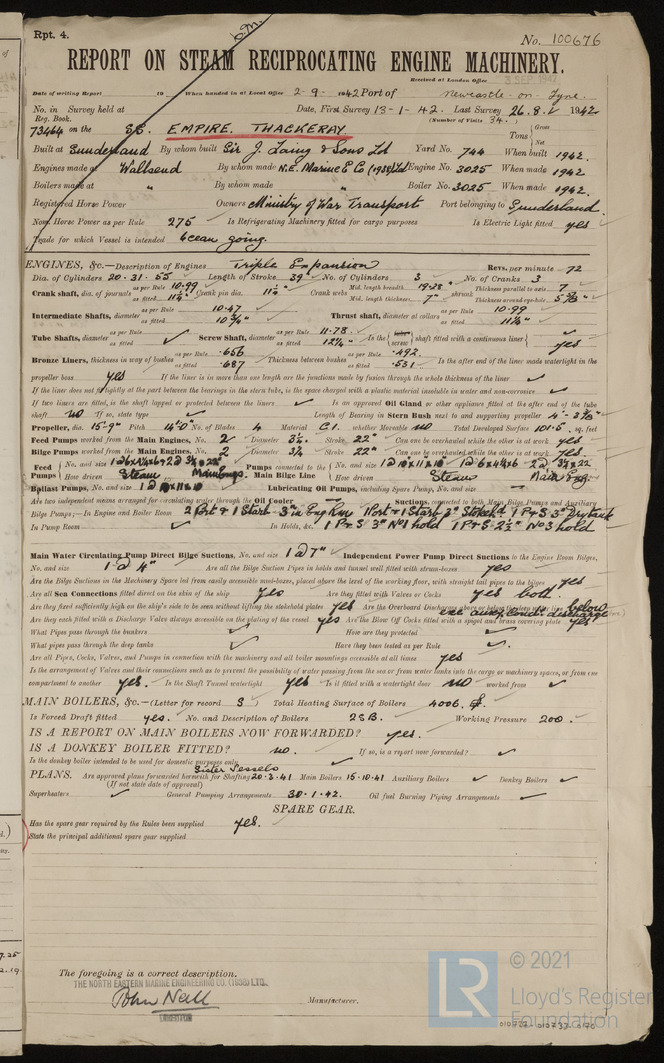 Rpt. 4.
No. 100676
REPORT ON STEAM RECIPROCATING ENGINE MACHINERY.
Received at London Office
Date of writing Report 19 When handed in at Local Office 2-9-1942 Port of Newcastle-on-Tyne.
No. in Survey held at Date, First Survey 13-1-42. Last Survey 26.8. 1942
Reg. Book. (Number of Visits 34.)
73464 on the S.S. EMPIRE THACKERAY Tons Gross Net
Built at Sunderland By whom built Sir J. Laing & Sons Ld Yard No. 744 When built 1942.
Engines made at Wallsend By whom made N.E. Marine E Co (1938) Ld Engine No. 3025 When made 1942
Boilers made at " By whom made " Boiler No. 3025 When made 1942.
Registered Horse Power Owners Ministry of War Transport Port belonging to Sunderland.
Nom. Horse Power as per Rule 275 Is Refrigerating Machinery fitted for cargo purposes Is Electric Light fitted yes
Trade for which Vessel is intended Ocean going.
ENGINES, &c.—Description of Engines Triple Expansion Revs. per minute 72
Dia. of Cylinders 20-31-55 Length of Stroke 39" No. of Cylinders 3 No. of Cranks 3
Crank shaft, dia. of journals as per Rule 10.99 as fitted 11¼" Crank pin dia. 11¼" Crank webs Mid. length breadth 19.28" Mid. length thickness 7" shrunk Thickness parallel to axis 7 Thickness around eye-hole
Intermediate Shafts, diameter as per Rule 10.47 as fitted 10¾" Thrust shaft, diameter at collars as per Rule 10.99 as fitted 11¼"
Tube Shafts, diameter as per Rule as fitted Screw Shaft, diameter as per Rule 11.78 as fitted 12¼" Is the tube screw shaft fitted with a continuous liner yes
Bronze Liners, thickness in way of bushes as per Rule .656 as fitted .687 Thickness between bushes as per Rule .492 as fitted .531 Is the after end of the liner made watertight in the
propeller boss yes If the liner is in more than one length are the junctions made by fusion through the whole thickness of the liner
If the liner does not fit tightly at the part between the bearings in the stern tube, is the space charged with a plastic material insoluble in water and non-corrosive
If two liners are fitted, is the shaft lapped or protected between the liners Is an approved Oil Gland or other appliance fitted at the after end of the tube
shaft no If so, state type Length of Bearing in Stern Bush next to and supporting propeller
Propeller, dia. 15-9" Pitch 14'0" No. of Blades 4 Material C.I. whether Moveable no Total Developed Surface 101.5 sq. feet
Feed Pumps worked from the Main Engines, No. 2 Diameter 3½" Stroke 22" Can one be overhauled while the other is at work yes
Bilge Pumps worked from the Main Engines, No. 2 Diameter 3½ Stroke 22" Can one be overhauled while the other is at work yes
Feed Pumps No. and size How driven Steam Main Engs. Pumps connected to the Main Bilge Line No. and size How driven Steam Main Eng.
Ballast Pumps, No. and size 1 @ 10 x 11 x 10 Lubricating Oil Pumps, including Spare Pump, No. and size
Are two independent means arranged for circulating water through the Oil Cooler Suctions, connected to both Main Bilge Pumps and Auxiliary
Bilge Pumps;—In Engine and Boiler Room 2 Port & 1 Starb. 3" in Eng Rm 1 Port & 1 Starb 3" Stokehd 1 P & S 3" Dry tank
In Pump Room In Holds, &c. 1 P & S 3" No 1 hold 1 P & S 2½" No 3 hold
Main Water Circulating Pump Direct Bilge Suctions, No. and size 1 @ 7" Independent Power Pump Direct Suctions to the Engine Room Bilges,
No. and size 1 @ 4" Are all the Bilge Suction Pipes in holds and tunnel well fitted with strum-boxes yes
Are the Bilge Suctions in the Machinery Space led from easily accessible mud-boxes, placed above the level of the working floor, with straight tail pipes to the bilges yes
Are all Sea Connections fitted direct on the skin of the ship yes Are they fitted with Valves or Cocks yes both.
Are they fixed sufficiently high on the ship's side to be seen without lifting the stokehold plates yes Are the Overboard Discharges above or below the deep water line below
exc aux cond: discharge
Are they each fitted with a Discharge Valve always accessible on the plating of the vessel yes Are the Blow Off Cocks fitted with a spigot and brass covering plate yes
What Pipes pass through the bunkers How are they protected
What pipes pass through the deep tanks Have they been tested as per Rule
Are all Pipes, Cocks, Valves, and Pumps in connection with the machinery and all boiler mountings accessible at all times yes
Is the arrangement of Valves and their connections such as to prevent the possibility of water passing from the sea or from water tanks into the cargo or machinery spaces, or from one
compartment to another yes. Is the Shaft Tunnel watertight yes Is it fitted with a watertight door no worked from
MAIN BOILERS, &c.—(Letter for record S) Total Heating Surface of Boilers 4006.
Is Forced Draft fitted yes. No. and Description of Boilers 2SB. Working Pressure 200.
IS A REPORT ON MAIN BOILERS NOW FORWARDED? yes.
IS A DONKEY BOILER FITTED? no. If so, is a report now forwarded?
Is the donkey boiler intended to be used for domestic purposes only
Sister Vessels
PLANS. Are approved plans forwarded herewith for Shafting 20-3-41 Main Boilers 15-10-41 Auxiliary Boilers Donkey Boilers
(If not state date of approval)
Superheaters General Pumping Arrangements 30.1.42. Oil fuel Burning Piping Arrangements
SPARE GEAR.
Has the spare gear required by the Rules been supplied yes.
State the principal additional spare gear supplied
The foregoing is a correct description.
THE NORTH EASTERN MARINE ENGINEERING CO. (1938) LTD.
John Nall Manufacturer.
LR
© 2021
Lloyd's Register
Foundation